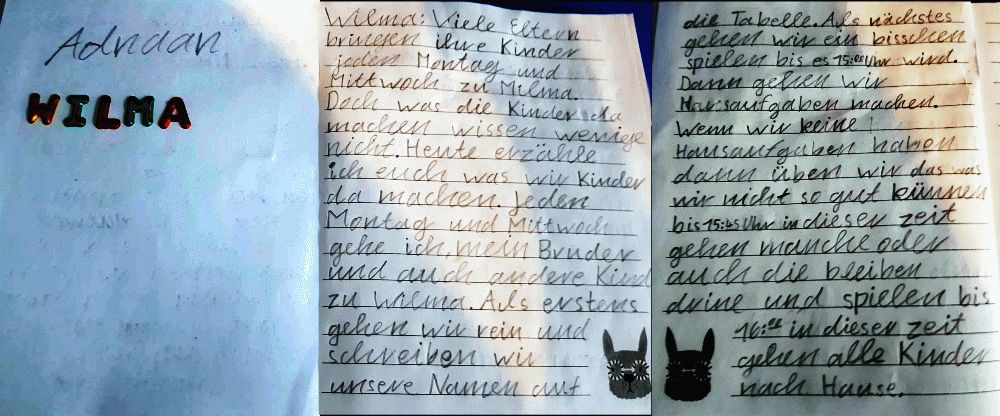 Adnaan
WILMA
Wilma: Viele Eltern
bringen ihre Kinder
jeden Montag und
Mittwoch zu Milma.
Doch was die Kinder da
machen wissen wenige
nicht. Heute erzähle
ich euch was wir Kinder
da machen. Jeden
Montag und Mittwoch
gehe ich, mein Bruder
und auch andere Kind
zu Wilma. Als erstens
gehen wir rein und
schreiben wir
unsere Namen auf
die Tabelle. Als nächstes
gehen wir ein bisschen
spielen bis es 15:00 Uhr wird.
Dann gehen wir
Hausaufgaben machen.
Wenn wir keine
Hausaufgaben haben
dann üben wir das was
wir nicht so gut können
bis 15:45 Uhr in dieser zeit
gehen manche oder
auch die bleiben
drine und spielen bis
16:00 in dieser zeit
gehen alle Kinder
nach Hause.